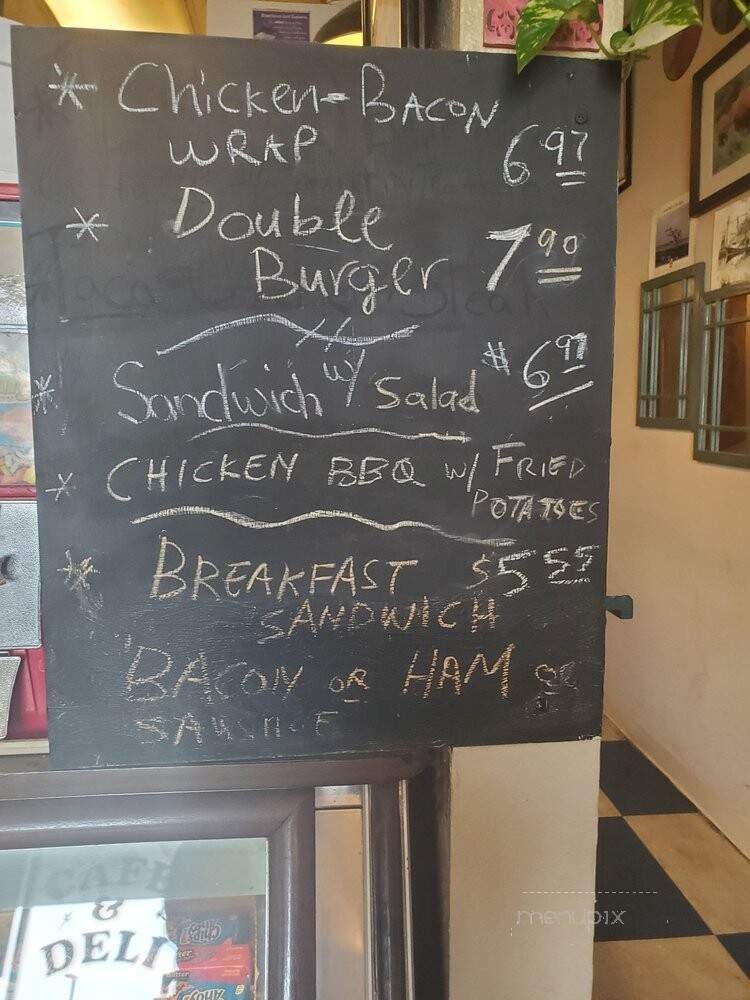 * Chicken-BACON
WRAP 6.97
* Double
Burger 7.90
* Sandwich w/ Salad $6.99
* CHICKEN BBQ w/ FRIED
POTATOES
* BREAKFAST $5.55
SANDWICH
BACON OR HAM or
SAUSAGE
CAFE
&
DELI
menupix